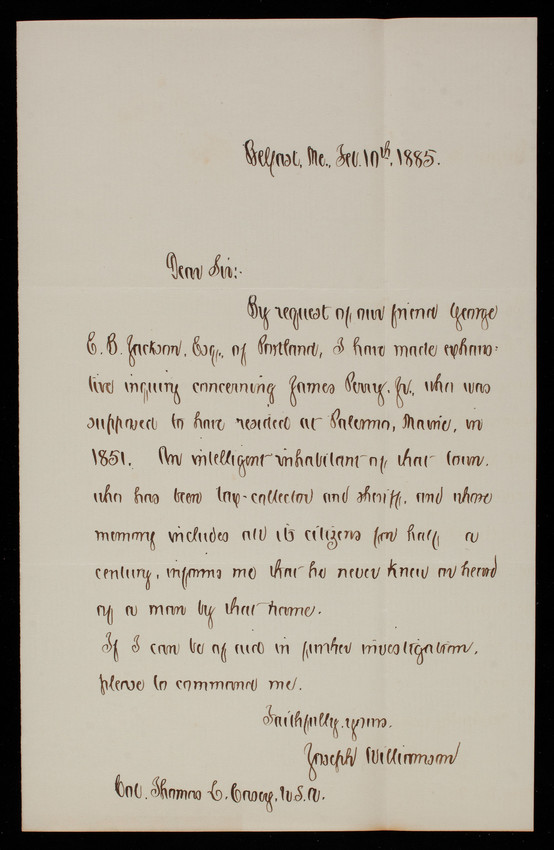 Belfast, Me., Feb. 10th, 1885.
Dear Sir:-
By request of our friend George
E. B. Jackson, Esq., of Portland, I have made exhaus-
tive inquiry concerning James Perry, Jr., who was
supposed to have resided at Palermo, Maine, in
1851. An intelligent inhabitant of that town,
who has been tax-collector and sheriff, and whose
memory includes all its citizens for half a
century, informs me that he never knew or heard
of a man by that name.
If I can be of aid in further investigation,
please to command me.
Faithfully yours,
Joseph Williamson
Col. Thomas L. Casey, U.S.A.